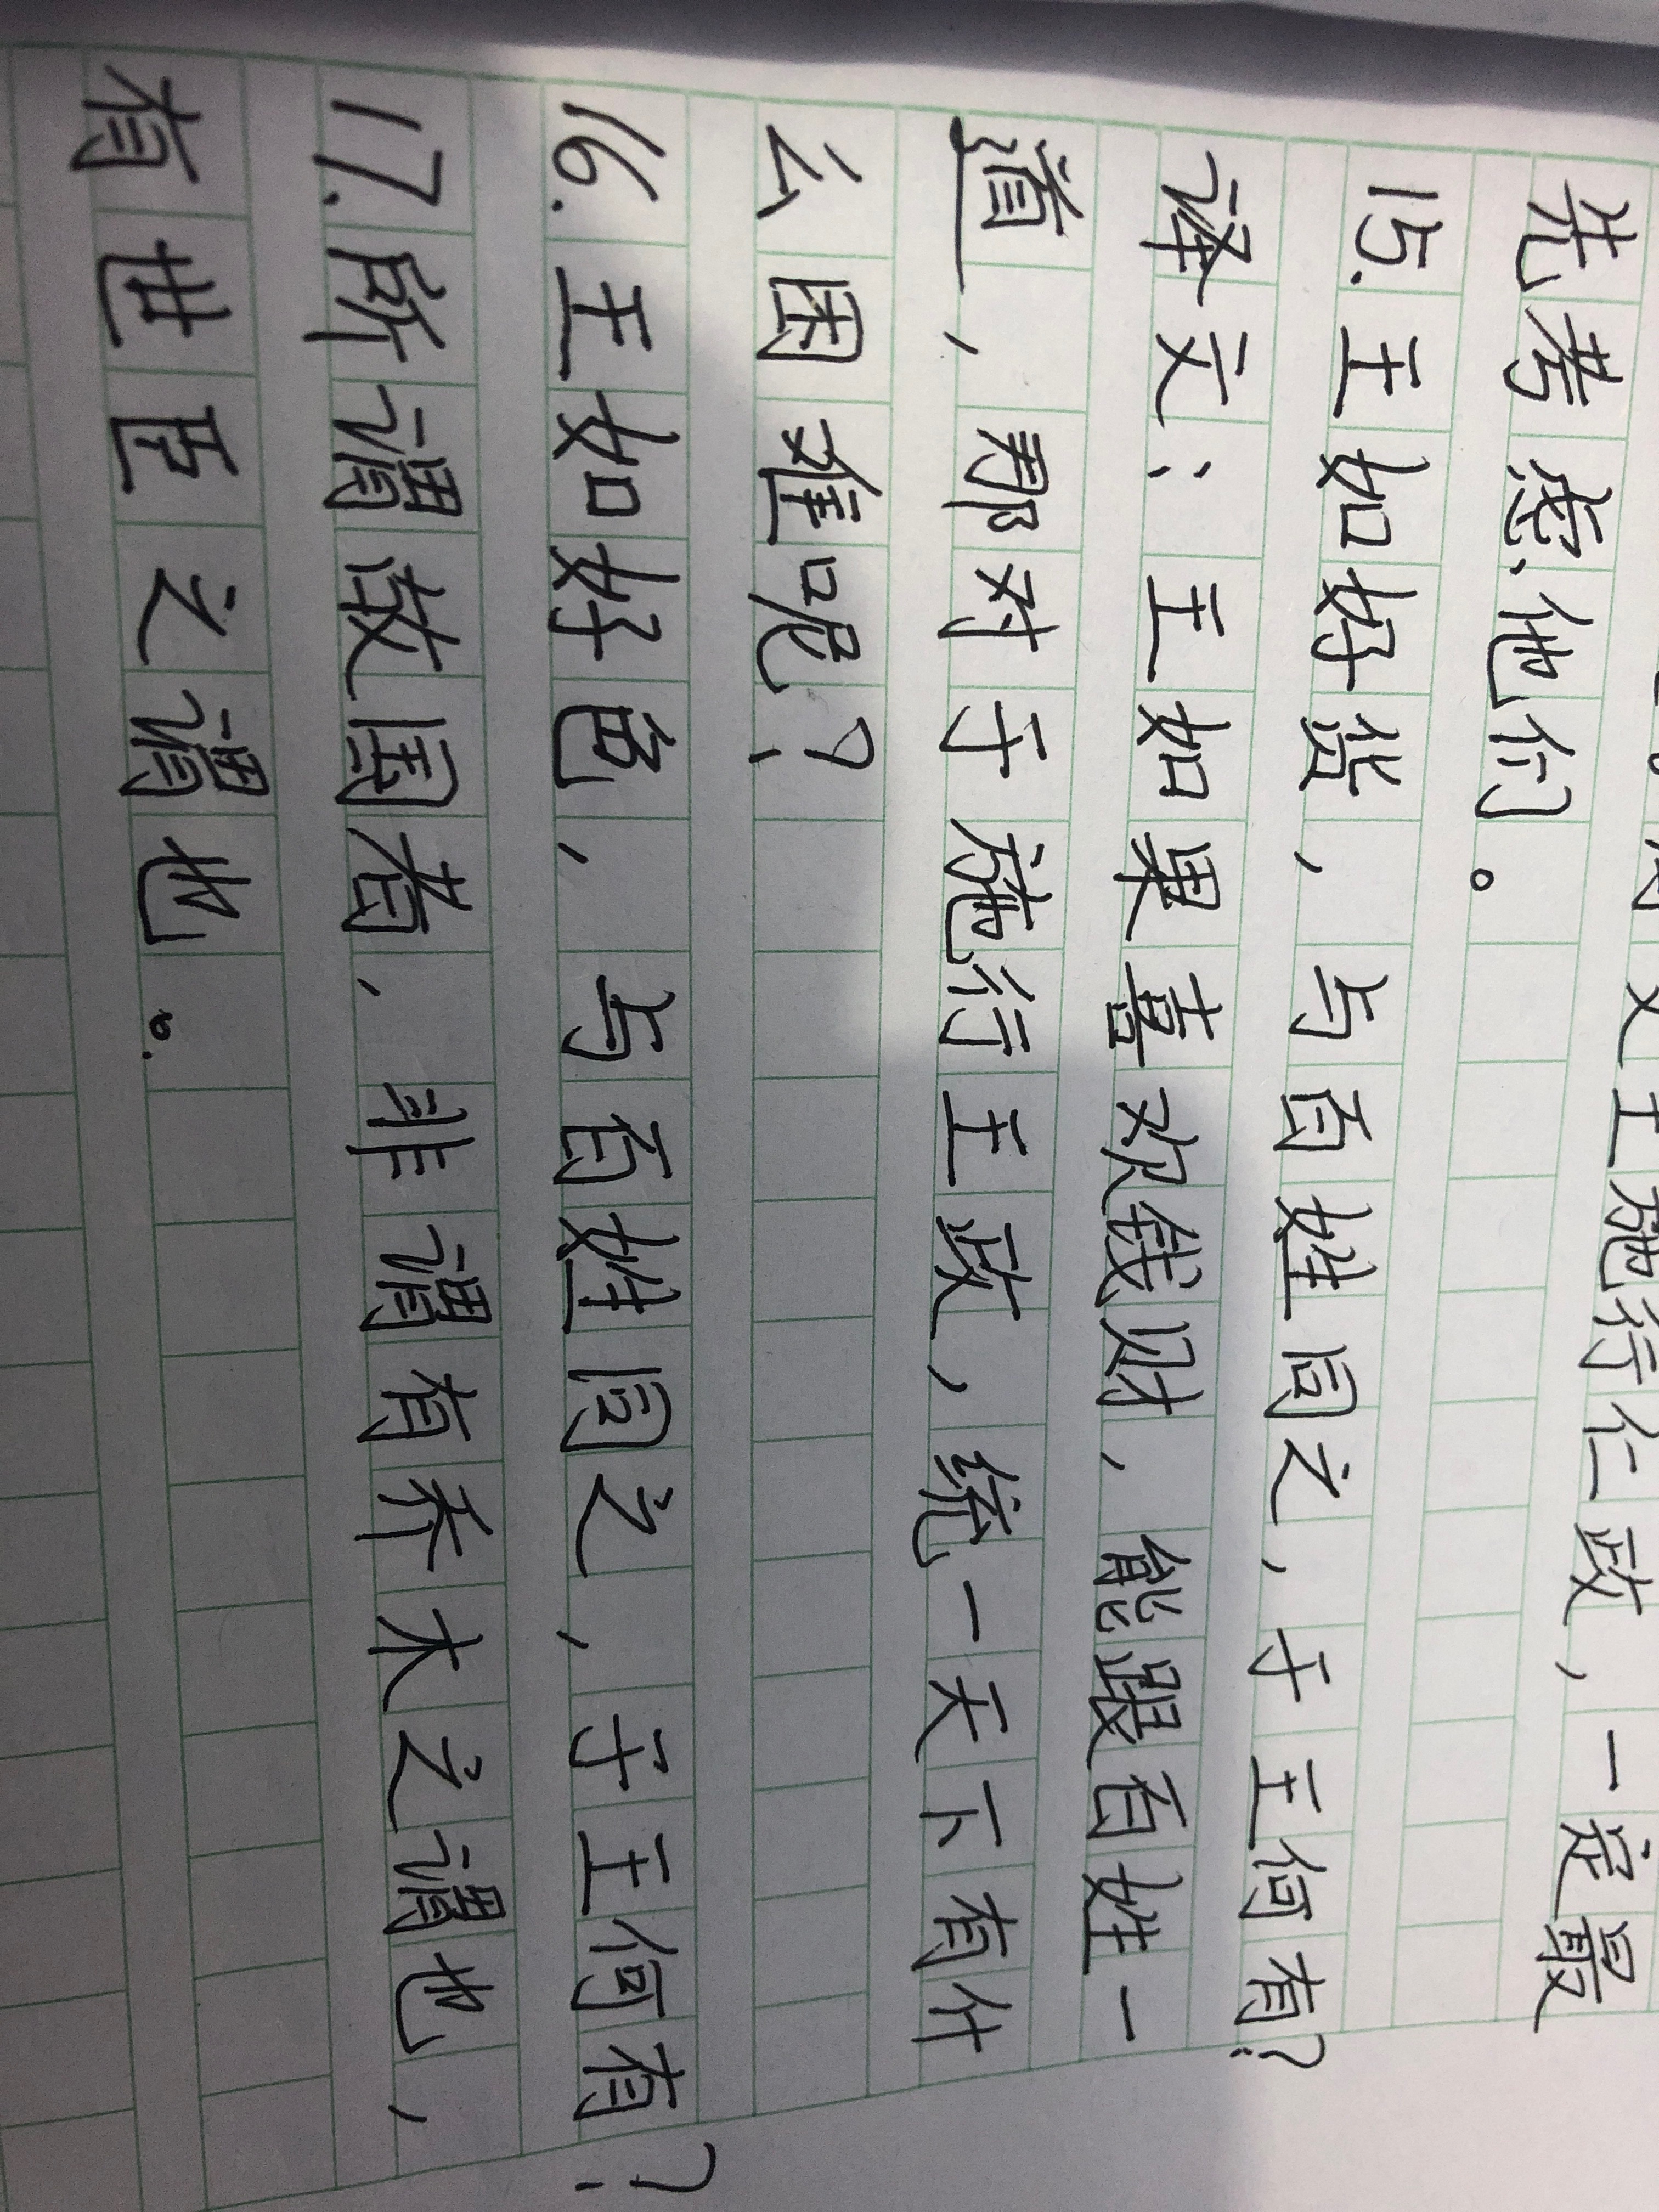 文王施行仁政，一定最
先考虑他们。
15.王如好货，与百姓同之，于王何有？
译文：王如果喜欢钱财，能跟百姓一
道，那对于施行王政，统一天下有什
么困难呢？
16.王如好色，与百姓同之，于王何有？
17.所谓故国者，非谓有乔木之谓也，
有世臣之谓也。